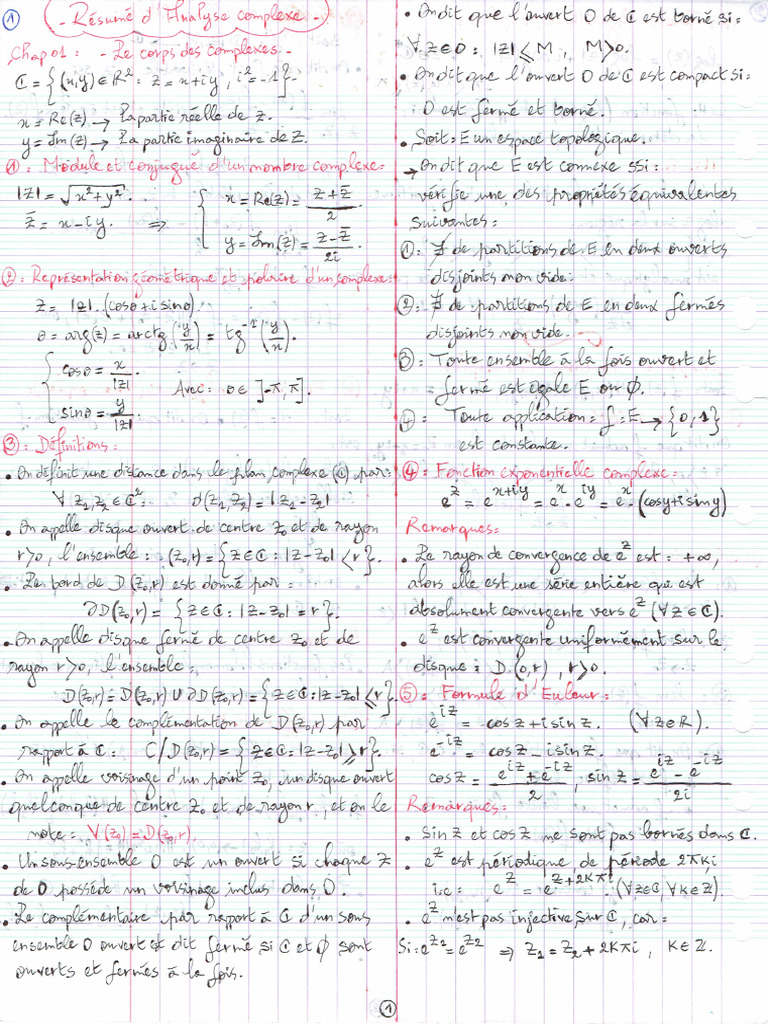 1
- Résumé d'Analyse complexe -
Chap 01 : - Le corps des complexes -
ℂ = {(x,y) ∈ R² : z = x+iy , i² = -1}.
x = Re(z) → La partie réelle de z.
y = Im(z) → La partie imaginaire de z.
① : Module et conjugué d'un nombre complexe :
|z| = √(x²+y²).
z̄ = x - iy. ⇒ { x = Re(z) = (z+z̄)/2
y = Im(z) = (z-z̄)/2i
② : Représentation géométrique et polaire d'un complexe :
z = |z|.(cosθ + i sinθ)
θ = arg(z) = arctg(y/x) = tg⁻¹(y/x).
{ cosθ = x/|z|.
sinθ = y/|z|. Avec : θ ∈ ]-π, π].
③ : Définitions :
• On définit une distance dans le plan complexe (ℂ) par :
∀ z₁,z₂ ∈ ℂ² d(z₁,z₂) = |z₁-z₂|
• On appelle disque ouvert de centre z₀ et de rayon
r>0, l'ensemble : (z₀,r) = {z∈ℂ : |z-z₀| < r}.
• Le bord de D(z₀,r) est donné par :
∂D(z₀,r) = {z∈ℂ : |z-z₀| = r}.
• On appelle disque fermé de centre z₀ et de
rayon r>0, l'ensemble :
D(z₀,r) = D(z₀,r) ∪ ∂D(z₀,r) = {z∈ℂ : |z-z₀| ≤ r}.
• On appelle le complémentation de D(z₀,r) par
rapport à ℂ : C/D(z₀,r) = {z∈ℂ : |z-z₀| ≥ r}.
• On appelle voisinage d'un point z₀, un disque ouvert
quelconque de centre z₀ et de rayon r, et on le
note : V(z₀) = D(z₀,r).
• Un sous-ensemble O est un ouvert si chaque z
de O possède un voisinage inclus dans O.
• Le complémentaire par rapport à ℂ d'un sous
ensemble O ouvert est dit fermé, si ℂ et ∅ sont
ouverts et fermés à la fois.
• On dit que l'ouvert O de ℂ est borné si :
∀ z∈O : |z| ≤ M , M>0.
• On dit que l'ouvert O de ℂ est compact si :
O est fermé et borné.
• Soit : E un espace topologique.
→ On dit que E est connexe ssi :
vérifie une des propriétés équivalentes
suivantes :
① : ∄ de partitions de E en deux ouverts
disjoints non vide.
② : ∄ de partitions de E en deux fermés
disjoints non vide.
③ : Toute ensemble à la fois ouvert et
fermé est égale E ou ∅.
④ : Toute application : f : E → {0,1}
est constante.
④ : Fonction exponentielle complexe :
e^z = e^(x+iy) = e^x . e^(iy) = e^x . (cosy + i siny)
Remarques :
• Le rayon de convergence de e^z est : +∞,
alors elle est une série entière qui est
absolument convergente vers e^z (∀ z∈ℂ).
• e^z est convergente uniformément sur le
disque : D(0,r) , r>0.
⑤ : Formule d'Euleur :
e^(iz) = cos z + i sin z. (∀z∈R).
e^(-iz) = cos z - i sin z.
cos z = (e^(iz) + e^(-iz))/2 , sin z = (e^(iz) - e^(-iz))/2i
Remarques :
• Sin z et cos z ne sont pas bornés dans ℂ.
• e^z est périodique de période 2πk i
i.e : e^z = e^(z+2kπi) (∀z∈ℂ, ∀k∈ℤ).
• e^z n'est pas injective sur ℂ, car :
Si : e^(z₁) = e^(z₂) ⇒ z₁ = z₂ + 2kπi , k∈ℤ.
1